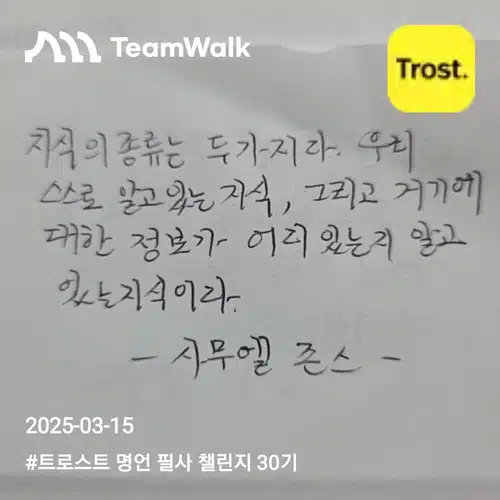 TeamWalk
Trost.
지식의 종류는 두가지다. 우리
스스로 알고있는 지식, 그리고 거기에
대한 정보가 어디 있는지 알고
있는지식이다.
- 사무엘 존스 -
2025-03-15
#트로스트 명언 필사 챌린지 30기